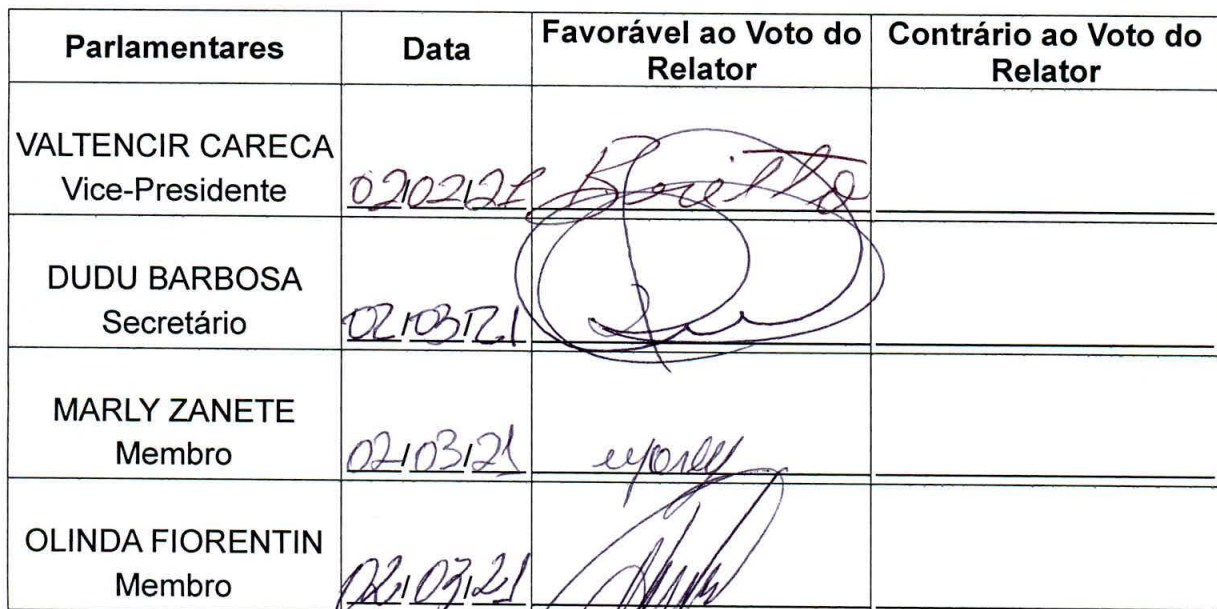 Parlamentares Data Favorável ao Voto do Relator Contrário ao Voto do Relator
VALTENCIR CARECA
Vice-Presidente 02/02/21
DUDU BARBOSA
Secretário 02/03/21
MARLY ZANETE
Membro 02/03/21
OLINDA FIORENTIN
Membro 02/03/21